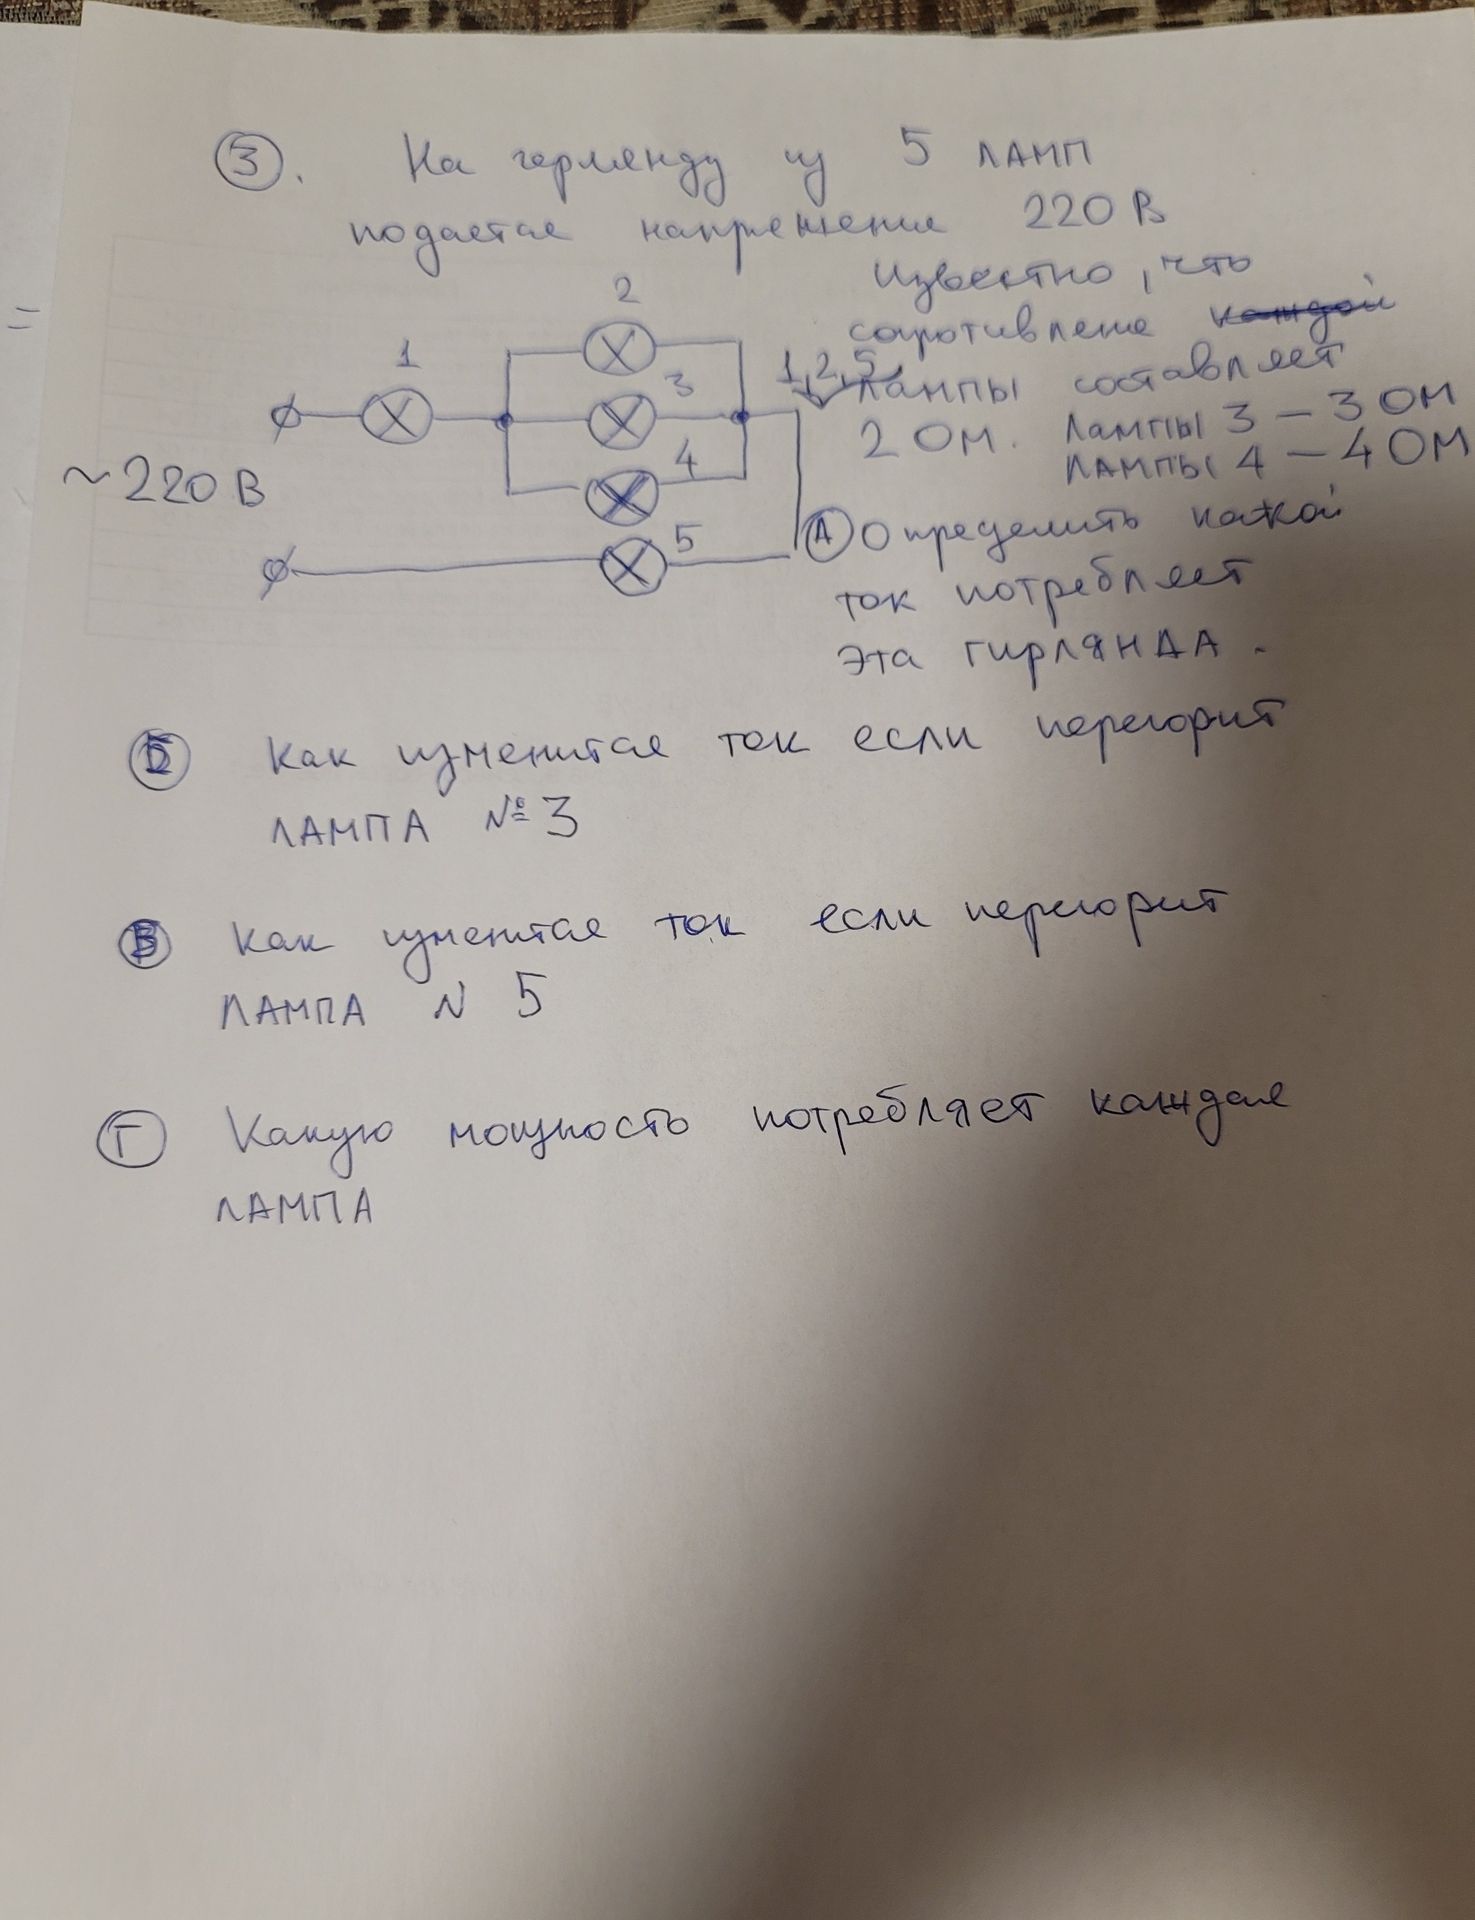 3. На герлянду из 5 ламп
подается напряжение 220 В
Известно, что
сопротивление каждой
1, 2, 5 лампы составляет
2 Ом. Лампы 3 – 3 Ом
Лампы 4 – 4 Ом
1
2
3
4
5
~220 В
А Определить какой
ток потребляет
эта гирлянда.
Б Как изменится ток если перегорит
лампа № 3
В Как изменится ток если перегорит
лампа N 5
Г Какую мощность потребляет каждая
лампа
=